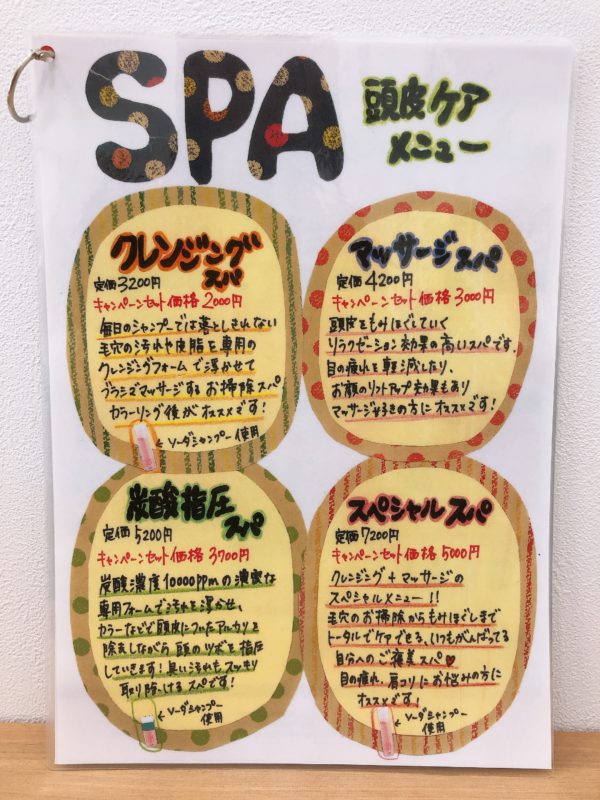 SPA
頭皮ケア
メニュー
クレンジング
スパ
定価3200円
キャンペーンセット価格2000円
毎日のシャンプーでは落としきれない
毛穴の汚れや皮脂を専用の
クレンジングフォームで浮かせて
ブラシでマッサージするお掃除スパ
カラーリング後がオススメです!
←ソーダシャンプー使用
マッサージスパ
定価4200円
キャンペーンセット価格3000円
頭皮をもみほぐしていく
リラクゼーション効果の高いスパです.
目の疲れを軽減したり、
お顔のリフトアップ効果もあり
マッサージ好きの方にオススメです!
炭酸指圧
スパ
定価5200円
キャンペーンセット価格3700円
炭酸濃度10000ppmの濃密な
専用フォームで汚れを浮かせ、
カラーなどで頭皮についたアルカリを
除去しながら頭のツボを指圧
していきます!臭い汚れもスッキリ
取り除けるスパです!
←ソーダシャンプー
使用
スペシャルスパ
定価7200円
キャンペーンセット価格5000円
クレンジング+マッサージの
スペシャルメニュー!!
毛穴のお掃除からもみほぐしまで
トータルでケアできる、いつもがんばってる
自分へのご褒美スパ♥
目の疲れ、肩コリにお悩みの方に
オススメです!
←ソーダシャンプー
使用